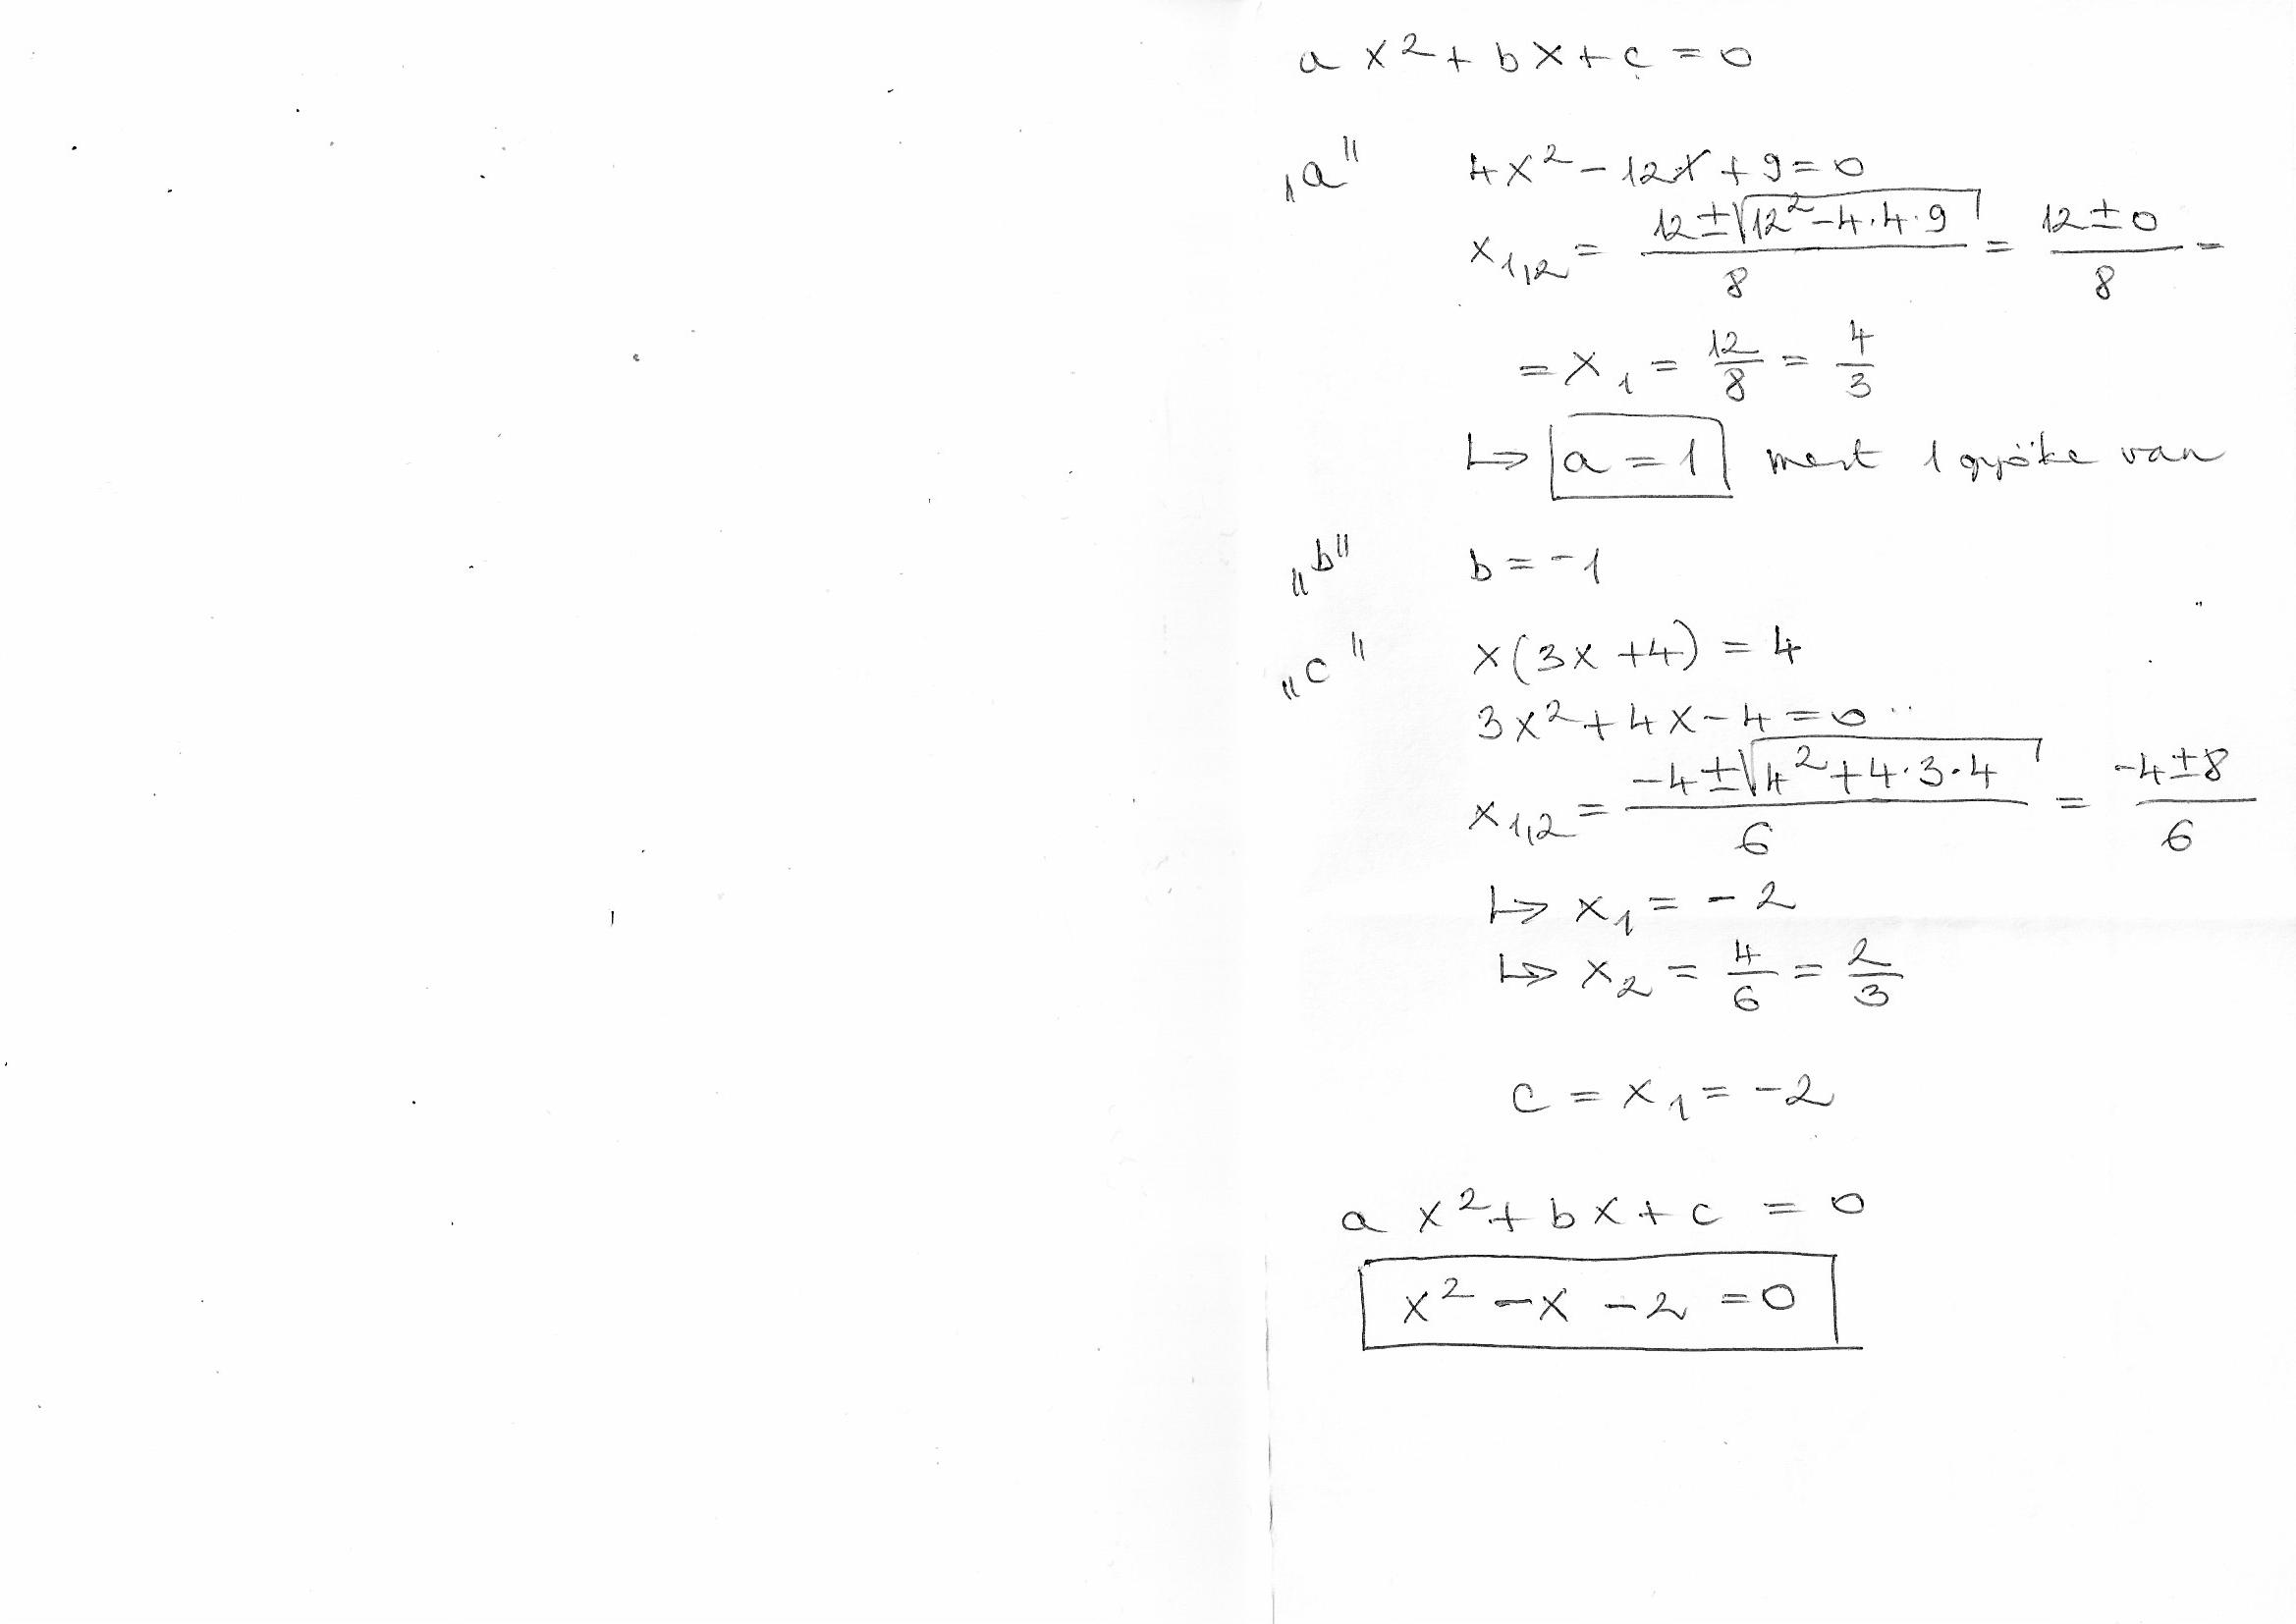 ax²+bx+c=0
„a" 4x²-12x+9=0
x₁,₂ = (12±√(12²-4·4·9))/8 = (12±0)/8 =
= x₁ = 12/8 = 4/3
↳ a=1 mert 1 gyöke van
„b" b=-1
„c" x(3x+4)=4
3x²+4x-4=0
x₁,₂ = (-4±√(4²+4·3·4))/6 = (-4±8)/6
↳ x₁ = -2
↳ x₂ = 4/6 = 2/3
c = x₁ = -2
ax²+bx+c=0
x²-x-2=0